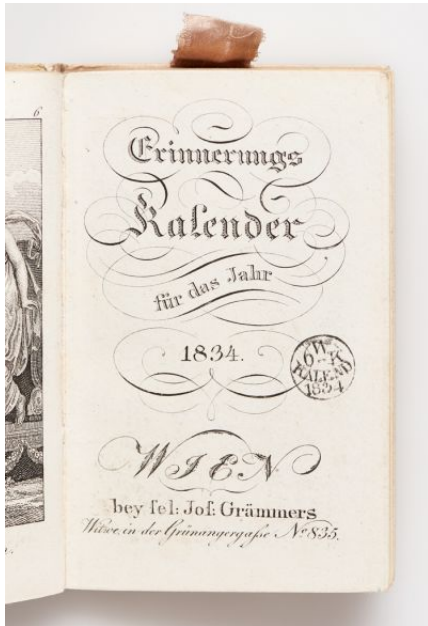 6
Erinnerungs
Kalender
für das Jahr
1834.
6 W K
KALEND
1834
WIEN
bey sel: Jos: Grämmers
Witwe, in der Grünangergasse No 835.